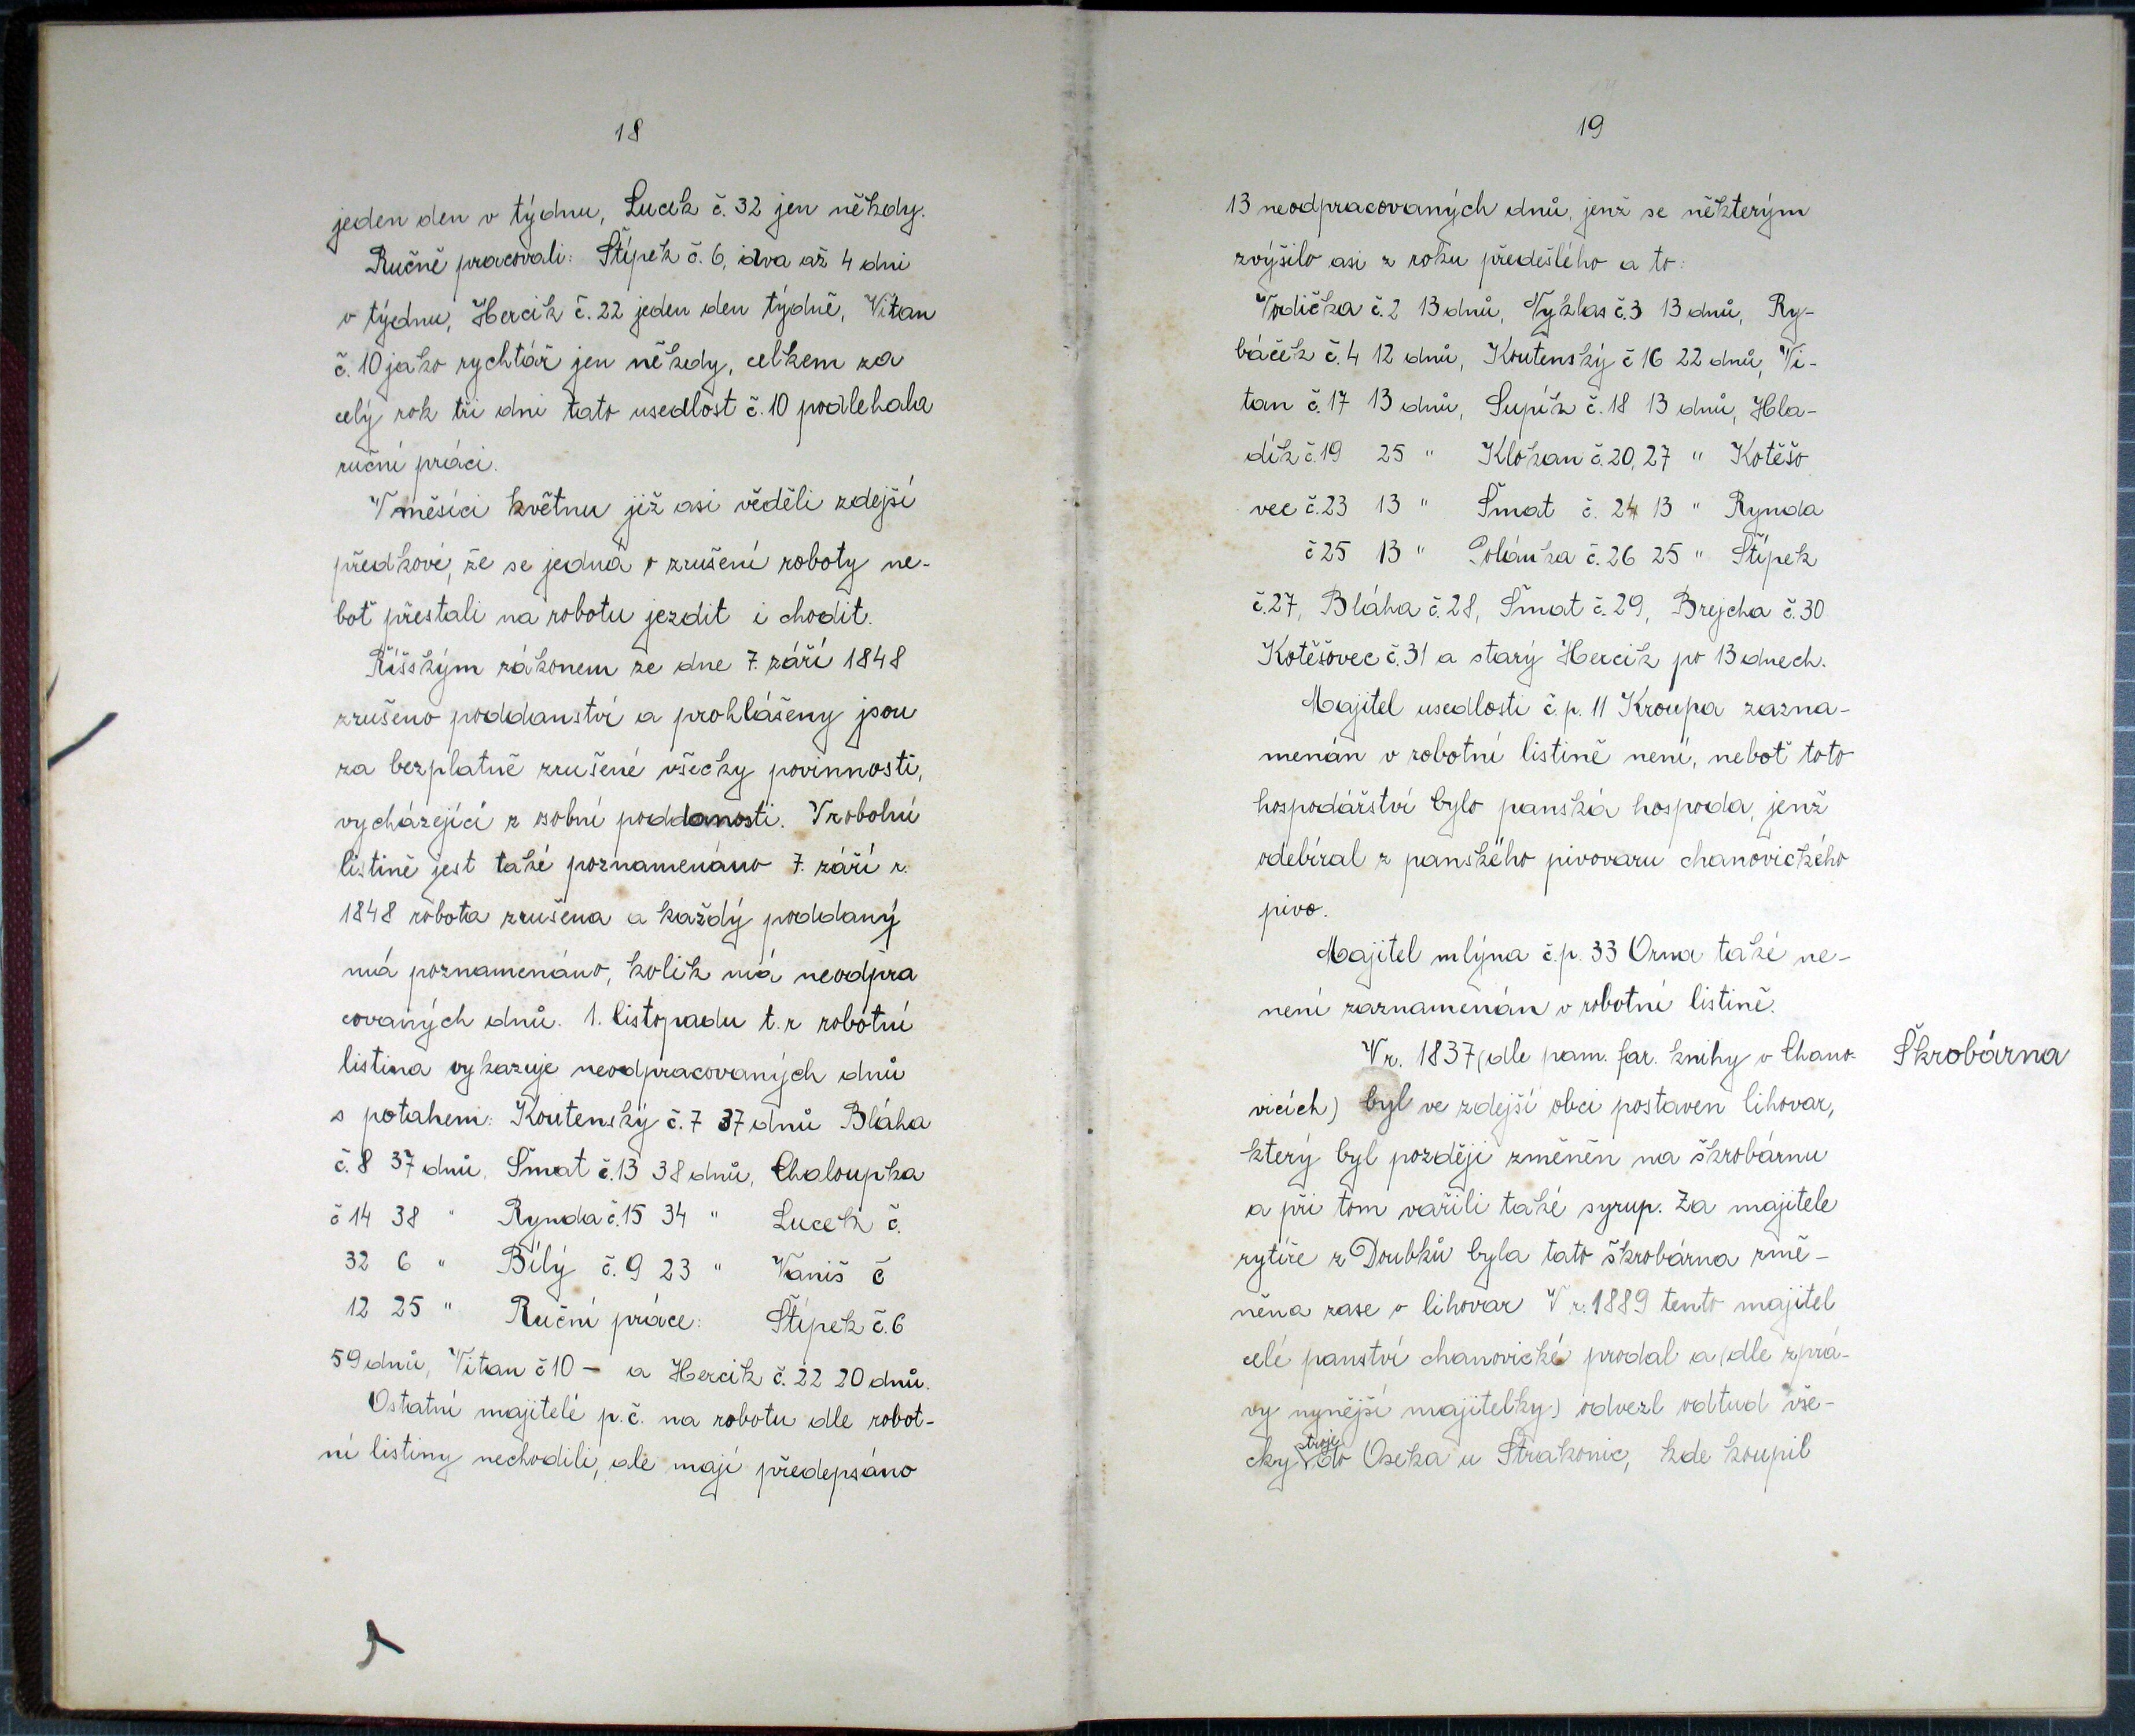 18
jeden den v týdnu, Lucek č. 32 jen někdy.
Ručně pracovali: Štípek č. 6, dva až 4 dni
v týdnu, Hercik č. 22 jeden den týdně, Vitan
č. 10 jako rychtář jen někdy, celkem za
celý rok tři dni tato usedlost č. 10 podlehala
ruční práci.
V měsíci květnu již asi věděli zdejší
předkové, že se jedná o zrušení roboty ne-
boť přestali na robotu jezdit i chodit.
Říšským zákonem ze dne 7. září 1848
zrušeno poddanství a prohlášeny jsou
za bezplatně zrušené všecky povinnosti,
vycházející z osobní poddanosti. V robotní
listině jest také poznamenáno 7. září r.
1848 robota zrušena a každý poddaný
má poznamenáno, kolik má neodpra
covaných dnů. 1. listopadu t. r robotní
listina vykazuje neodpracovaných dnů
s potahem: Koutenský č. 7 37 dnů Bláha
č. 8 37 dnů, Šmat č. 13 38 dnů, Chaloupka
č 14 38 " Rynda č. 15 34 " Lucek č.
32 6 " Bílý č. 9 23 " Vaniš č
12 25 " Ruční práce: Štípek č. 6
59 dnů, Vitan č 10 – a Hercik č. 22 20 dnů.
Ostatní majitelé p. č. na robotu dle robot-
ní listiny nechodili, ale mají předepsáno
19
13 neodpracovaných dnů, jenž se některým
zvýšilo asi z roku předešlého a to:
Vodička č. 2 13 dnů, Vyklas č. 3 13 dnů, Ry-
báček č. 4 12 dnů, Koutenský č 16 22 dnů, Vi-
tan č. 17 13 dnů, Supík č. 18 13 dnů, Hla-
dík č. 19 25 " Klokan č. 20, 27 " Kotěšo
vec č. 23 13 " Šmat č. 24 13 " Rynda
č 25 13 " Polánka č. 26 25 " Štípek
č. 27, Bláha č. 28, Šmat č. 29, Brejcha č. 30
Kotěšovec č. 31 a starý Hercik po 13 dnech.
Majitel usedlosti č. p. 11 Kroupa zazna-
menán v robotní listině není, neboť toto
hospodářství bylo panská hospoda, jenž
odebíral z panského pivovaru chanovického
pivo.
Majitel mlýna č. p. 33 Orna také ne-
není zaznamenán v robotní listině.
V r. 1837 (dle pam. far. knihy v Chano-
Škrobárna
vicích) byl ve zdejší obci postaven lihovar,
který byl později změněn na škrobárnu
a při tom vařili také syrup. Za majitele
rytíře z Doubků byla tato škrobárna změ-
něna zase v lihovar V r. 1889 tento majitel
celé panství chanovické prodal a (dle zprá-
vy nynější majitelky) odvezl odtud vše-
cky stroje do Oseka u Strakonic, kde koupil